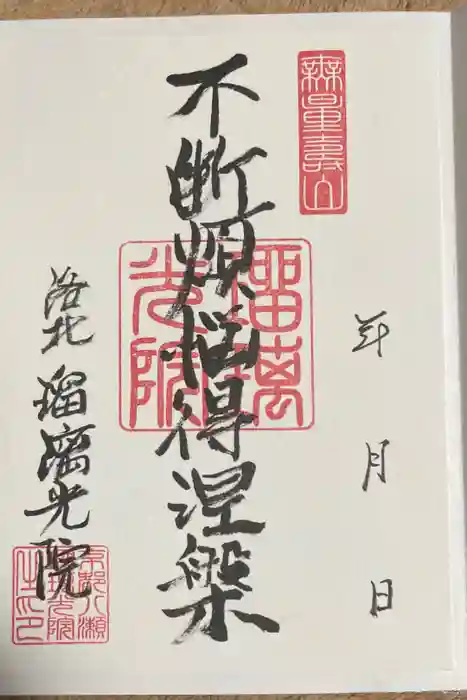 無量壽山
年 月 日
不断煩悩得涅槃
瑠璃
光院
洛北 瑠璃光院
京都八瀬
瑠璃光院
住印